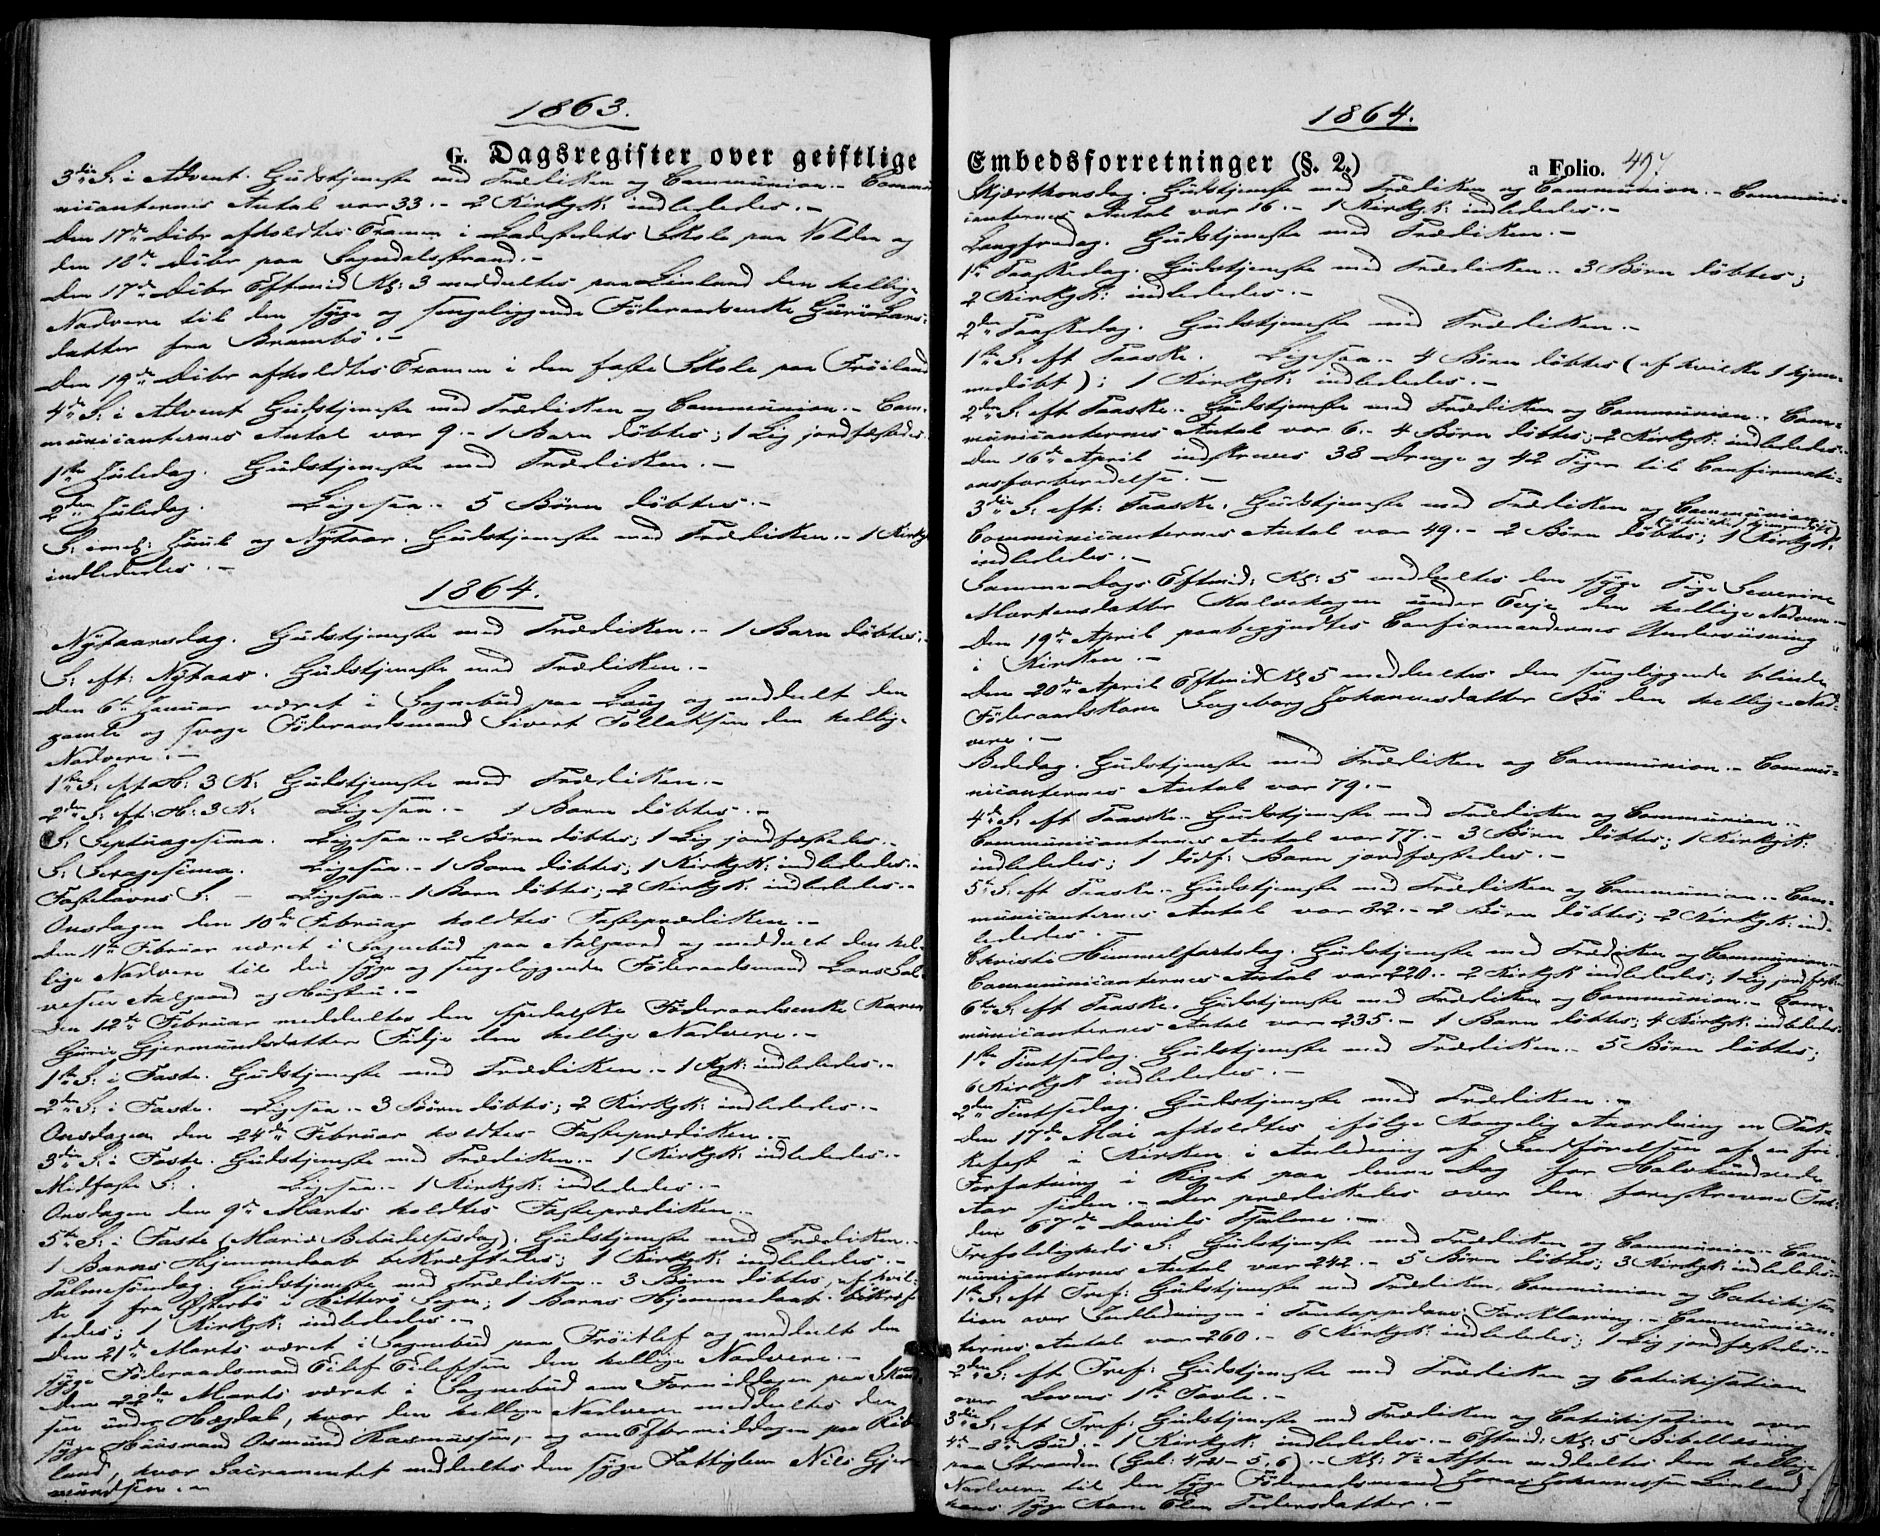 1863.
G. Dagsregister over geistlige
3die S: i Advent. Gudstjeneste med Prædiken og Communion. – Commu-
nicanternes Antal var 33. – 2 Kirkgk: indlededes. –
Den 17de Dcbr afholdtes Examen i Ladestedets Skole paa Nolden og
den 18de Dcbr paa Sogndalsstrand. –
Den 17de Dcbr Eftmid Kl: 3 meddeltes paa Linland den hellige
Nadvere til den syge og sengeliggende Föderaadsenke Guri Lars-
datter fra Brambö. –
Den 19de Dcbr afholdtes Examen i den faste Skole paa Fröiland
4de S: i Advent Gudstjeneste med Prædiken og Communion. – Com-
municanternes Antal var 9. – 1 Barn döbtes; 1 Lig jordfæstedes.
1ste Juledag. Gudstjeneste med Prædiken. –
2den Juledag. Ligesaa. – 5 Börn döbtes. –
S: imel: Juul og Nytaar. Gudstjeneste med Prædiken. – 1 Kirkg
indlededes. –
1864.
Nytaarsdag. Gudstjeneste med Prædiken. – 1 Barn döbtes. –
S: eft: Nytaar. Gudstjeneste med Prædiken. –
Den 6te Januar været i Sognebud paa Laug og meddeelt den
gamle og svage Föderaadsmand Sivert Tollaksen den hellige
Nadvere. –
1ste S: eft H: 3 K: Gudstjeneste med Prædiken. –
2den S: eft: H: 3 K: Ligesaa. – 1 Barn döbtes. –
S: Septuagesima. Ligesaa. – 2 Börn döbtes; 1 Lig jordfæstedes. –
S: Sexagesima. Ligesaa. – 1 Barn döbtes; 1 Kirkgk: indlededes. –
Fastelavns S: – Ligesaa. – 1 Barn döbtes; 2 Kirkgk: indlededes. –
Onsdagen den 10de Februar holdtes Fasteprædiken. –
Den 11te Februar været i Sognebud paa Aalgaard og meddeelt den hel-
lige Nadvere til den syge og sengeliggende Föderaadsmand Lars Sal-
vesen Aalgaard og Hustru. –
Den 12te Februar meddeeltes den spedalske Föderaadsenke Karen
Guri Gjermundsdatter Eidje den hellige Nadvere. –
1ste S: i Faste. Gudstjeneste med Prædiken. – 1 Kgk: indlededes. –
2den S: i Faste. Ligesaa. – 3 Börn döbtes; 2 Kirkgk: indlededes. –
Onsdagen den 24de Februar holdtes Fasteprædiken. –
3die S: i Faste. Gudstjeneste med Prædiken. – 1 Kirkgk: indlededes. –
Midfaste S: Ligesaa. – 1 Kirkgk: indlededes. –
Onsdagen den 9de Marts holdtes Fasteprædiken. –
5te S: i Faste (Mariæ Bebudelsesdag). Gudstjeneste med Prædiken. –
1 Barns Hjemmedaab bekræftedes; 1 Kirkgk: indlededes. –
Palmesöndag. Gudstjeneste med Prædiken. – 3 Börn döbtes, af hvil-
ke 1 fra Österbö i Hitterö Sogn; 1 Barns Hjemmedaab bekræf-
tedes; 1 Kirkgk: indlededes. –
Den 21de Marts været i Sognebud paa Fröitlef og meddeelt den
syge Föderaadsmand Eilef Eilefsen den hellige Nadvere. –
Den 22de Marts været i Sognebud om Formiddagen paa
sen under Hægdal, hvor den hellige Nadvere meddeeltes den
syge Huusmand Osmund Rasmussen, – og om Eftermiddagen paa
land, hvor Sacramentet meddeeltes den syge Fattiglem Nils Gjer-
mundsen. –
1864.
Embedsforretninger (§. 2.) a Folio. 497
Skjærthorsdag. Gudstjeneste med Prædiken og Communion. – Communi-
canternes Antal var 16. – 1 Kirkgk: indlededes. –
Langfredag. Gudstjeneste med Prædiken. –
1ste Paaskedag. Gudstjeneste med Prædiken. – 3 Börn döbtes;
2 Kirkgk: indlededes. –
2den Paaskedag. Gudstjeneste med Prædiken. –
1ste S: eft Paaske. Ligesaa. – 4 Börn döbtes (af hvilke 1 hjem-
medöbt); 1 Kirkgk: indlededes. –
2den S: eft Paaske. – Gudstjeneste med Prædiken og Communion. – Com-
municanternes Antal var 6. – 4 Börn döbtes; 2 Kirkgk: indlededes. –
Den 16de April indskreves 38 Drenge og 42 Piger til Confirmati-
onsforberedelse. –
3die S: eft: Paaske. Gudstjeneste med Prædiken og Communion.
Communicanternes Antal var 49. – 2 Börn (af hvilke 1 hjemmedöbt) döbtes; 1 Kirkgk:
indlededes. –
Samme Dags Eftmid: Kl: 5 meddeeltes den syge Pige Severine
Mortensdatter Kalvehagen under Eeije den hellige Nadvere –
Den 19de April paabegyndtes Confirmandernes Underviisning
i Kirken. –
Den 20de April Eftmid Kl 5 meddeeltes den sengeliggende blinde
Föderaadskone Ingeborg Johannesdatter Bö den hellige Nad-
vere. –
Bededag. Gudstjeneste med Prædiken og Communion. – Commu-
nicanternes Antal var 79. –
4de S: eft Paaske. – Gudstjeneste med Prædiken og Communion. –
Communicanternes Antal var 77. – 3 Börn döbtes; 1 Kirkgk:
indlededes; 1 dödf: Barn jordfæstedes. –
5te S: eft Paaske. – Gudstjeneste med Prædiken og Communion. – Com-
municanternes Antal var 32. – 2 Börn döbtes; 2 Kirkgk: ind-
lededes. –
Christi Himmelfartsdag. Gudstjeneste med Prædiken og Communion. –
Communicanternes Antal var 220. – 2 Kirkgk indlededes; 1 Lig jordfæst
6te S: eft Paaske. Gudstjeneste med Prædiken og Communion. – Com-
municanternes Antal var 235. – 1 Barn döbtes; 4 Kirkgk: indlededes
1ste Pintsedag. Gudstjeneste med Prædiken. – 5 Börn döbtes;
6 Kirkgk indlededes. –
2den Pintsedag. Gudstjeneste med Prædiken. –
Den 17de Mai afholdtes ifölge Kongelig Anordning en Tak-
kefest i Kirken i Anledning af Indförelsen af en fri
Forfatning i Riget paa denne Dag for Halvhundrede
Aar siden. – Der prædikedes over den foreskrevne Text:
den 67de Davids Psalme. –
Trefoldigheds S: Gudstjeneste med Prædiken og Communion. – Com-
municanternes Antal var 242. – 5 Börn döbtes; 3 Kirkgk: indlededes –
1ste S: eft Tref: Gudstjeneste med Prædiken, Communion og Catechisa-
tion over Indledningen i Pontoppidans Forklaring. – Communican-
ternes Antal var 260. – 6 Kirkgk: indlededes; 1 Lig jordfæstedes. –
2den S: eft Tref: Gudstjeneste med Prædiken og Catechisation
over Lovens 1ste Tavle. –
3die S: eft Tref: Gudstjeneste med Prædiken og Catechisation over
4de – 8de Bud. – 1 Kirkgk: indlededes. – Eftmid: Kl: 5 Bibellæsning
paa Stranden (Gal: – 5,6). – Kl: 7 Aften meddeeltes den hellige
Nadvere til den syge Föderaadsmand Jonas Johannessen Linland
hans syge Kone Elen Pedersdatter. –